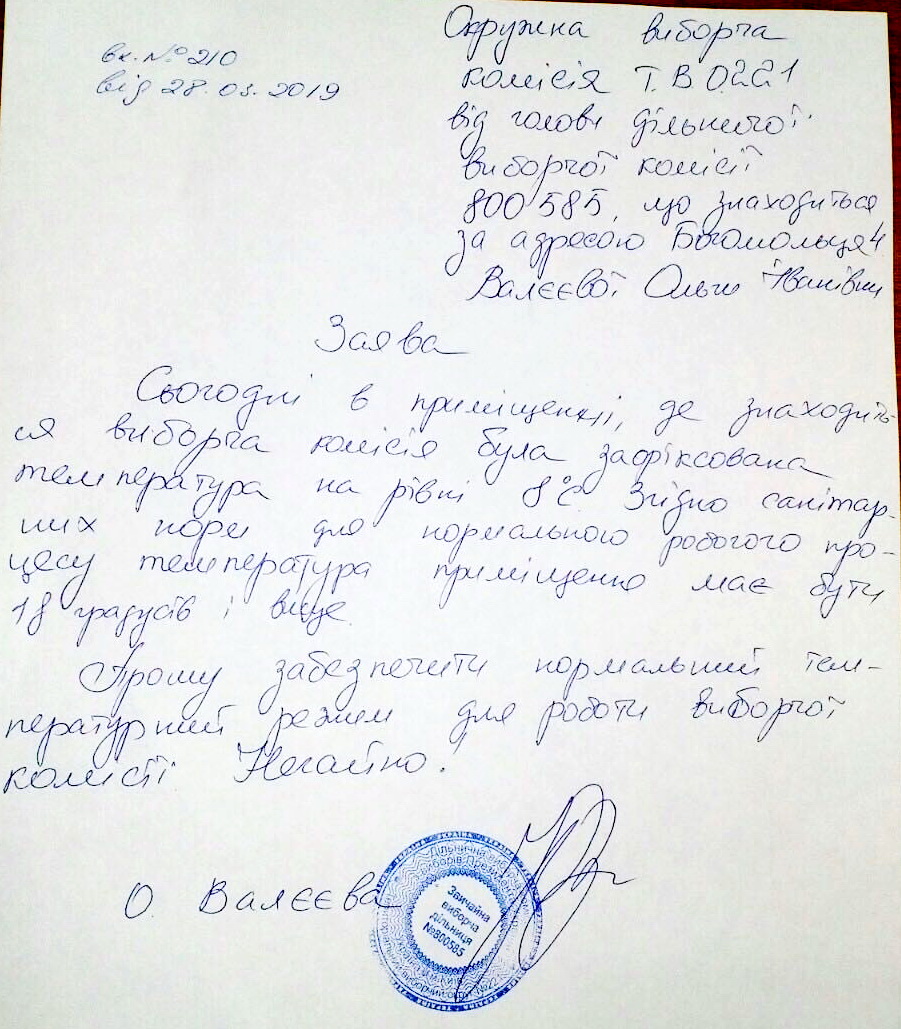 вх. № 210
від 28.03.2019
Окружна виборча
комісія Т.В О221
від голови дільничої
виборчої комісії
800585, що знаходиться
за адресою Богомольця 4
Валєєвої Ольги Іванівни
Заява
Сьогодні в приміщенні, де знаходить-
ся виборча комісія була зафіксована
температура на рівні 8°С. Згідно санітар-
них норм для нормального робочого про-
цесу температура приміщення має бути
18 градусів і вище.
Прошу забезпечити нормальний тем-
пературний режим для роботи виборчої
комісії Негайно!
О. Валєєва
Звичайна
виборча
дільниця
№800585